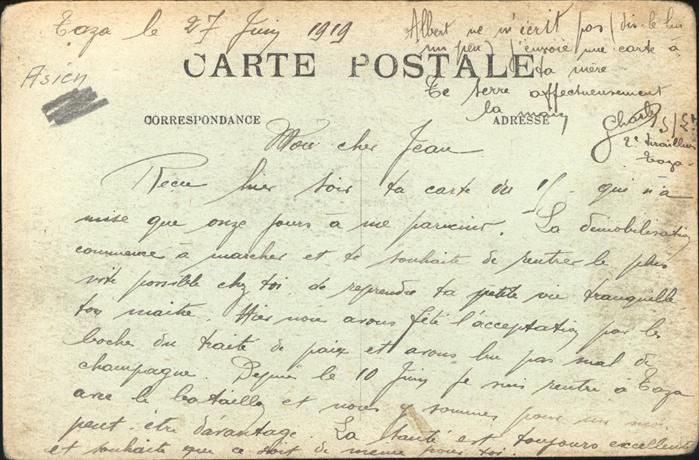 Taza le 27 Juin 1919
Albert ne m'écrit pas (dis-le lui
un peu) j'envoie une carte à
ta mère
Te serre affectueusement
la main
Charles
2e Tirailleurs
Taza
Asien
CARTE POSTALE
CORRESPONDANCE
ADRESSE
Mon cher Jean
Reçu hier soir ta carte du 15 qui n'a
mise que onze jours à me parvenir. La démobilisation
commence à marcher et te souhaite de rentrer le plus
vite possible chez toi de reprendre ta petite vie tranquille
ton maître. Hier nous avons fêté l'acceptation par les
boches du traité de paix et avons bu pas mal de
champagne. Depuis le 10 Juin je suis rentré à Taza
avec le bataillon et nous y sommes pour un mois
peut-être davantage. La santé est toujours excellente
et souhaite que ce soit de même pour toi.